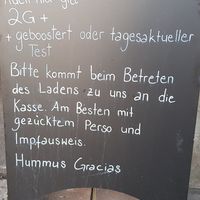 2G +
+ geboostert oder tagesaktueller
Test
Bitte kommt beim Betreten
des Ladens zu uns an die
Kasse. Am Besten mit
gezücktem Perso und
Impfausweis.
Hummus Gracias